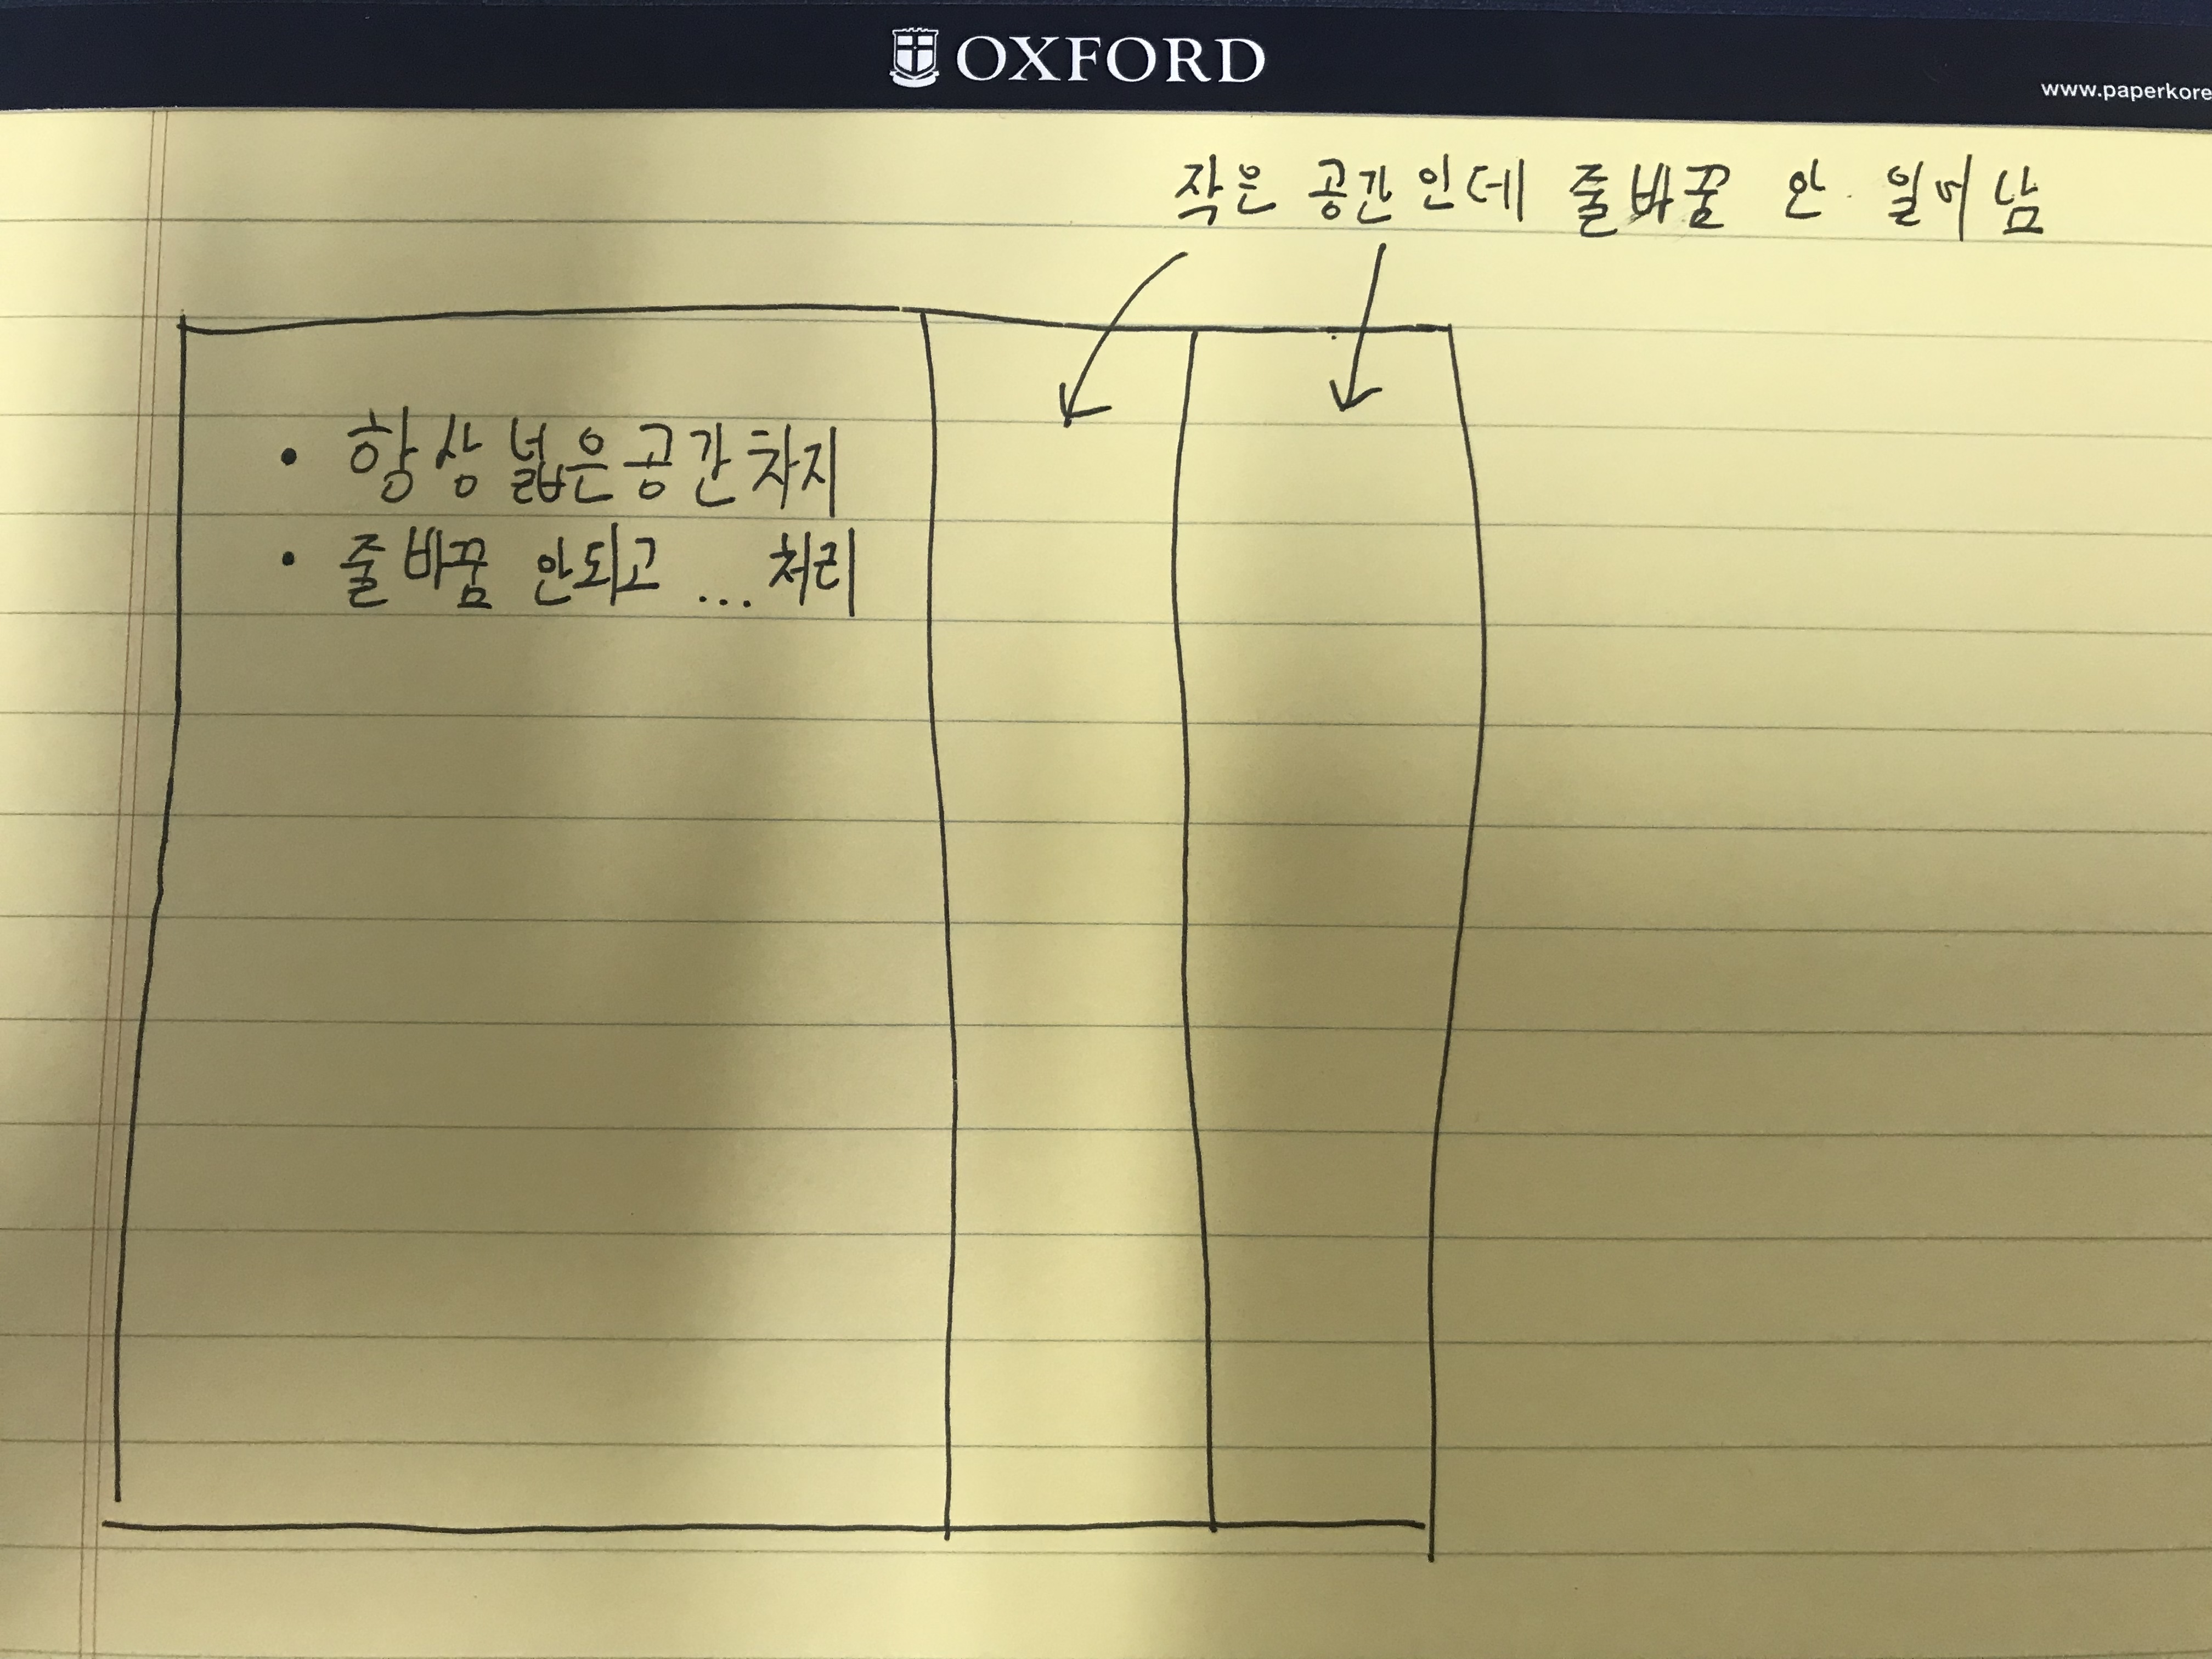 OXFORD
www.paperkore
작은 공간인데 줄바꿈 안 일어남
• 항상 넓은 공간 차지
• 줄바꿈 안되고 ... 처리